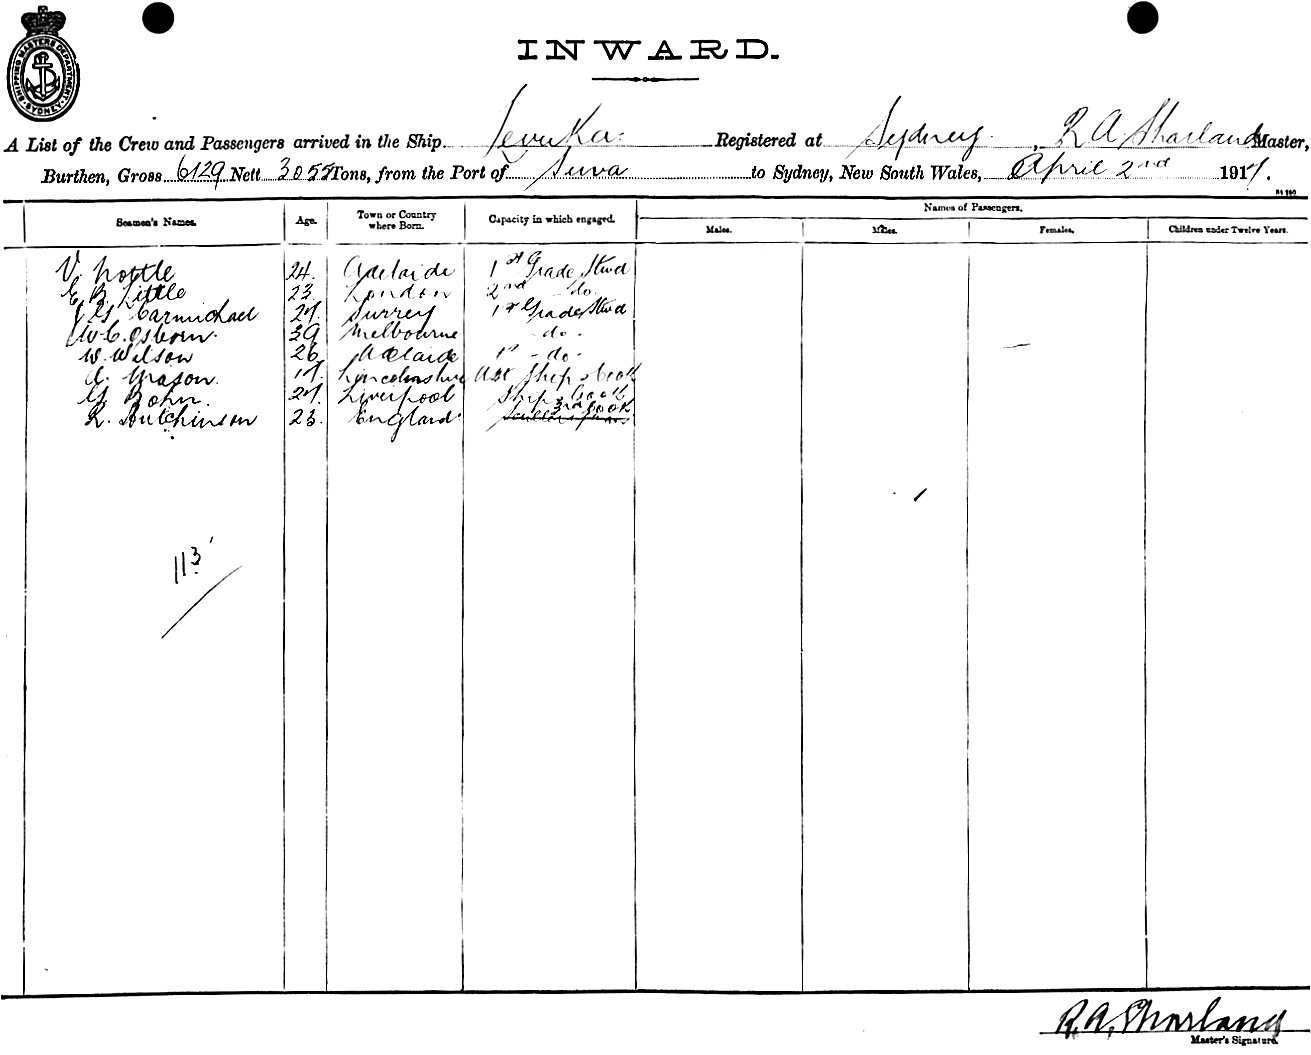 SHIPPING MASTERS DEPARTMENT SYDNEY
INWARD.
A List of the Crew and Passengers arrived in the Ship Levuka Registered at Sydney, R A Sharland Master,
Burthen, Gross 6129 Nett 3055 Tons, from the Port of Suva to Sydney, New South Wales, April 2nd 1917.
Seamen's Names. Age. Town or Country where Born. Capacity in which engaged. Names of Passengers.
Males. Males. Females. Children under Twelve Years.
V. Nottle 24. Adelaide 1st Grade Stwd
E B Little 23 London 2nd - do.
J G Carmichael 27. Surrey 1st Grade Stwd
W. C. Osborn. 39 Melbourne - do -
W. Wilson 26 Adelaide 1st - do -
A. Mason. 17. Lincolnshire Asst Ship's Cook
G Bohn. 27. Liverpool Ships Cook
R. Hutchinson 23. England 3rd Cook
113
R. A. Sharland
Master's Signature.